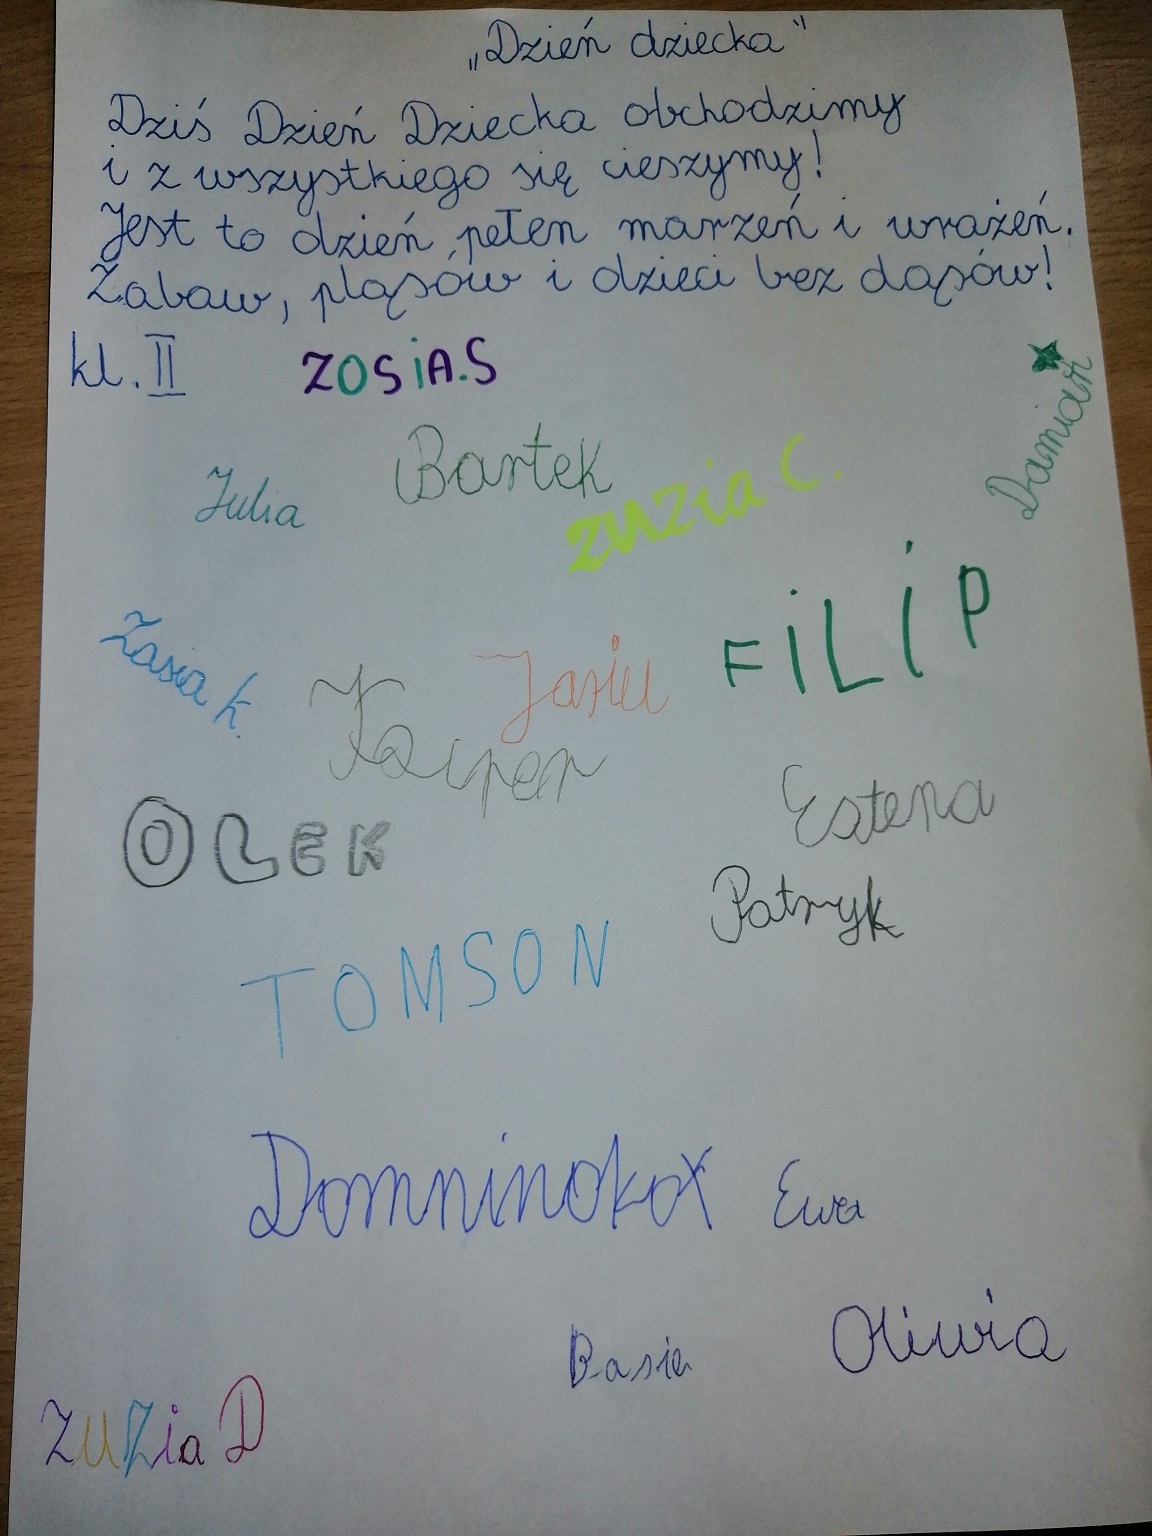 „Dzień dziecka"
Dziś Dzień Dziecka obchodzimy
i z wszystkiego się cieszymy!
Jest to dzień pełen marzeń i wrażeń.
Zabaw, pląsów i dzieci bez dąsów!
kl. II ZOSiA.S
Damian
Bartek
Julia
zuzia C.
FiLiP
Zosia K.
Jasiu
Kacper
Estera
OLEK
Patryk
TOMSON
Ewa
Oliwia
Basia
ZuZia D